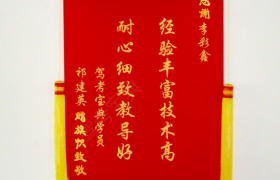 感谢李彩鑫
经验丰富技术高
耐心细致教导好
驾考宝典学员
祁建英赠旗致敬